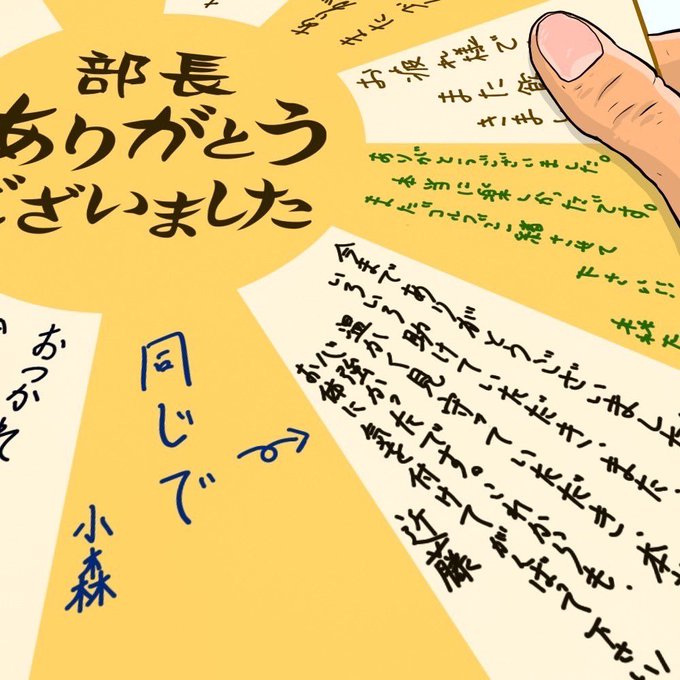 部長
ありがとう
ございました
お疲れ様で
また飲
きまし
ありがとうございました。
本当に楽しかったです。
またゴルフご一緒させて
下さい!!
今までありがとうございました
いろいろ助けていただき、また、
温かく見守っていただき、本
心強かったです。これからも、
お体に気を付けてがんばって下さい!
近藤
同じで
小森
おつかれ